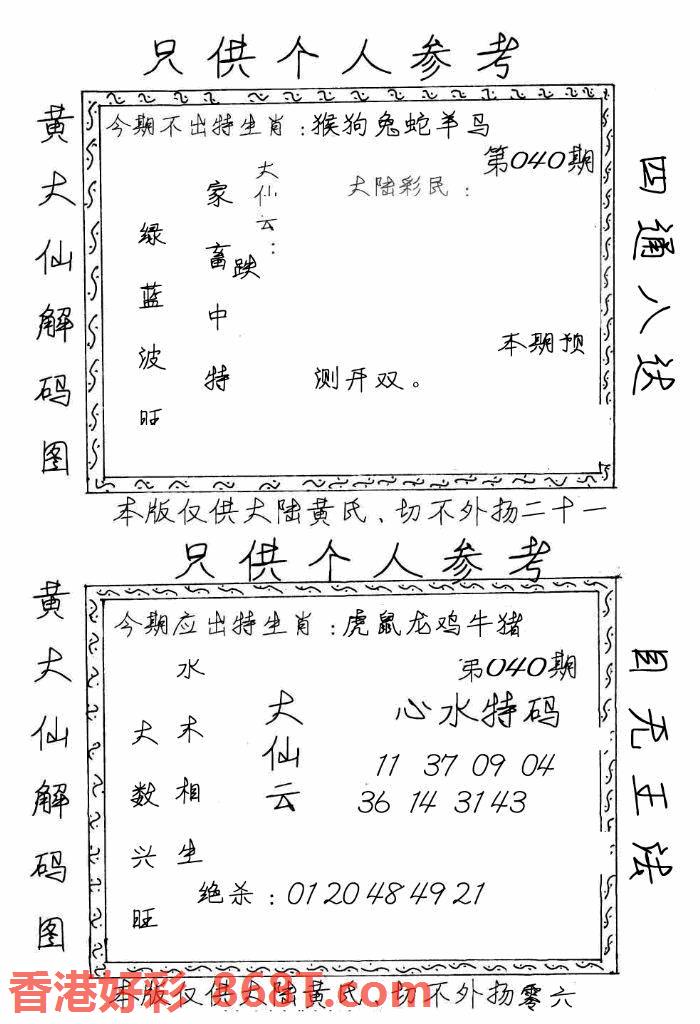 只供个人参考
黄大仙解码图
今期不出特生肖：猴狗兔蛇羊马
第040期
大仙云：
大陆彩民：
家畜中特
跌
绿蓝波旺
本期预
测开双。
四通八达
本版仅供大陆黄氏、切不外扬二十一
只供个人参考
黄大仙解码图
今期应出特生肖：虎鼠龙鸡牛猪
第040期
水木相生
大数兴旺
大仙云
心水特码
11 37 09 04
36 14 31 43
绝杀：01 20 48 49 21
目无王法
本版仅供大陆黄氏、切不外扬零六
香港好彩 868T.com